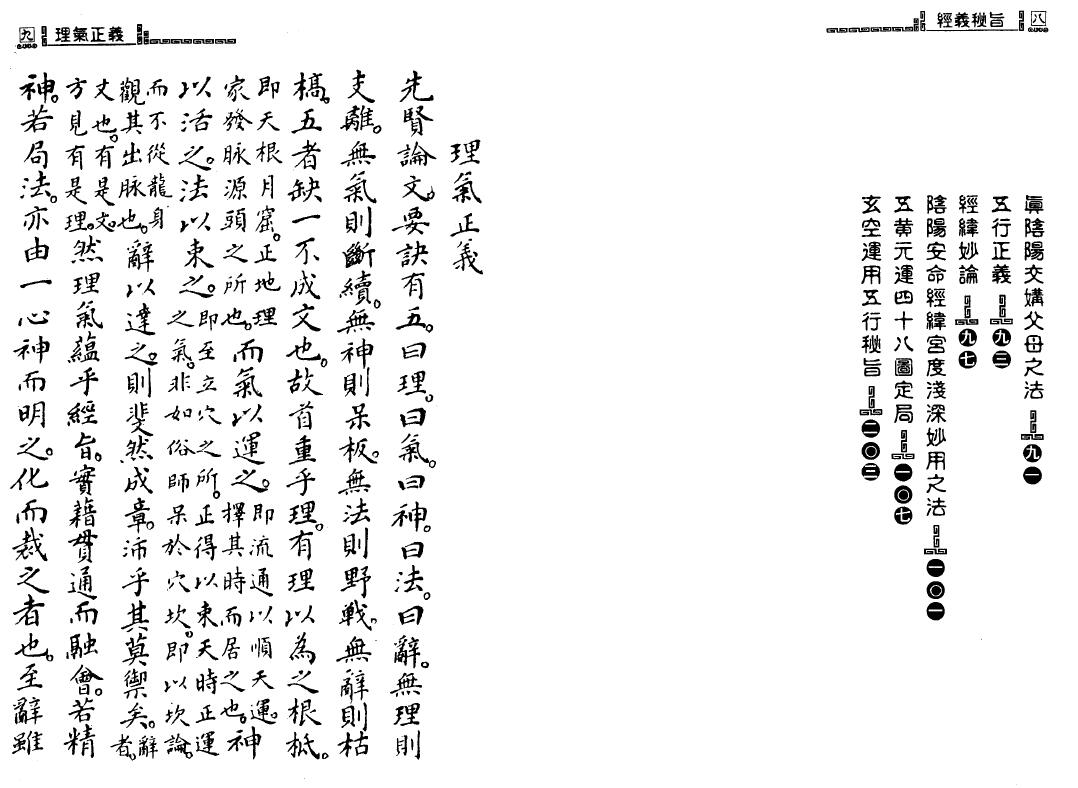 經義秘旨 八
眞陰陽交媾父母之法 九一
五行正義 九三
經緯妙論 九七
陰陽安命經緯宮度淺深妙用之法 一〇一
五黃元運四十八圖定局 一〇七
玄空運用五行秘旨 二〇三
九 理氣正義
理氣正義
先賢論文。要訣有五。曰理。曰氣。曰神。曰法。曰辭。無理則
支離。無氣則斷續。無神則呆板。無法則野戰。無辭則枯
槁。五者缺一不成文也。故首重乎理。有理以為之根柢。
即天根月窟。正地理
家發脉源頭之所也。
而氣以運之。
即流通以順天運。
擇其時而居之也。
神
以活之。法以束之。
即至立穴之所。正得以束天時正運
之氣。非如俗師呆於穴坎。即以坎論。
而不從龍身
觀其出脉也。
辭以達之。則斐然成章。沛乎其莫禦矣。
辭
者。
文也。有是文。
方見有是理。
然理氣蘊乎經旨。實藉貫通而融會。若精
神。若局法。亦由一心神而明之。化而裁之者也。至辭雖